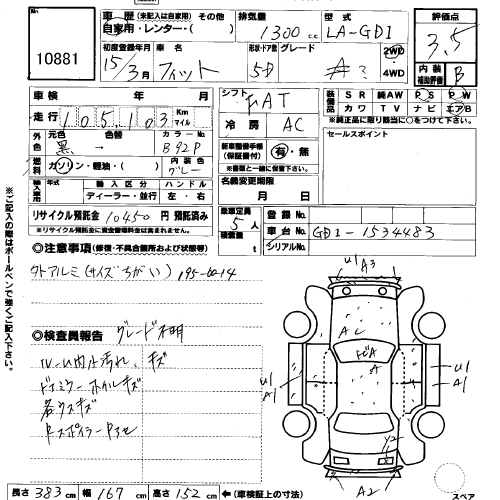 No.
10881
車歴(未記入は自家用) その他
自家用・レンター・( )
排気量
1300 cc
型式
LA-GD1
評価点
3.5
初度登録年月
15/3月
車名
フィット
形状・ドア数
5D
グレード
#?
2WD
・4WD
内装
補助評価
B
車検 年 月
シフト
FAT
装備品
SR 純AW PS PW
カワ TV ナビ エアB
※純正品に限り該当に○をつけて下さい。
走行 105,103 Km マイル
冷房
AC
セールスポイント
外色
元色 色替
黒 →
カラーNo.
B92P
新車整備手帳
(保証書付)
有・無
※書類と一緒に保管して下さい。
燃料
ガソリン・軽油・( )
内装色
グレー
名義変更期限
月 日
輸入車
年式
輸入区分
ディーラー・並行
ハンドル
左・右
リサイクル預託金 10450 円 預託済み
※リサイクル預託金に資金管理料金は含まれません。
乗車定員
5人
積載量
t
登録No.
車台No. GD1-1534483
シリアルNo.
◎注意事項(修復・不具合箇所および状態等)
外アルミ(サイズちがい) 195-60-14
◎検査員報告 グレード不明
ルーム内 汚れ、キズ
ドアミラー ホイルキズ
各ウスキズ
U1 A3
A
U1
A1
U1
A1
A2
長さ 383 cm 幅 167 cm 高さ 152 cm ←(車検証上の寸法)
スペア
※ご記入の際はボールペンで強くご記入下さい。